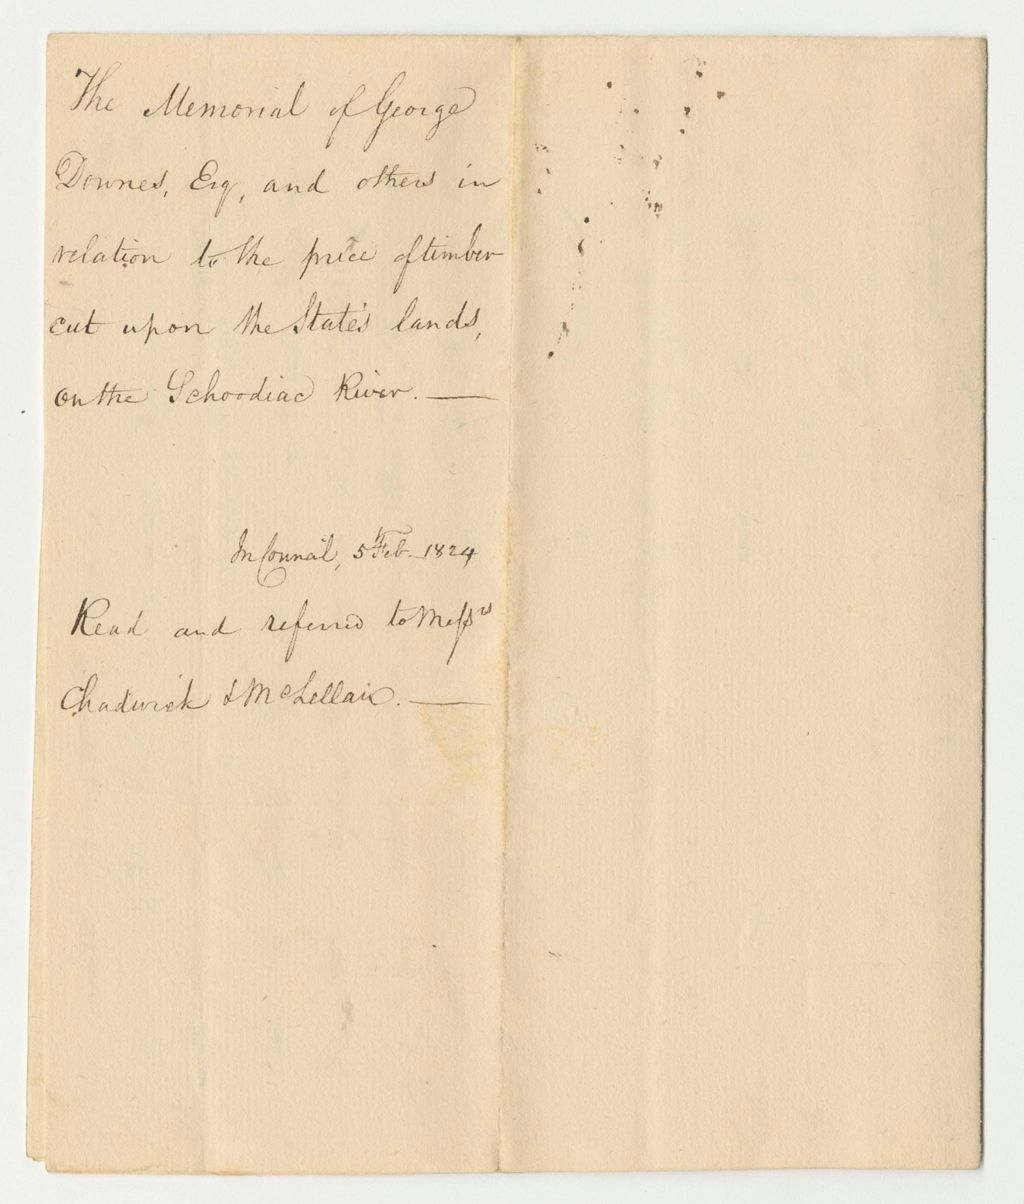 The Memorial of George
Downes, Esq, and others in
relation to the price of timber
cut upon the State's lands,
on the Schoodiac River. —
In Council, 5 Feb. 1824
Read and referred to Messrs
Chadwick & McLellan. —